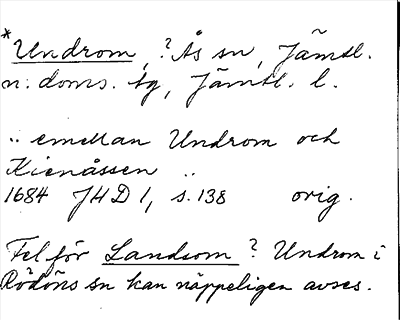 *Undrom, ? Ås sn, Jämtl.
n:doms. tg, Jämtl. l.
.. emellan Undrom och
Kienåssen ..
1684 JHD 1, s. 138 orig.
Fel för Landsom? Undrom i
Rödöns sn kan näppeligen avses.